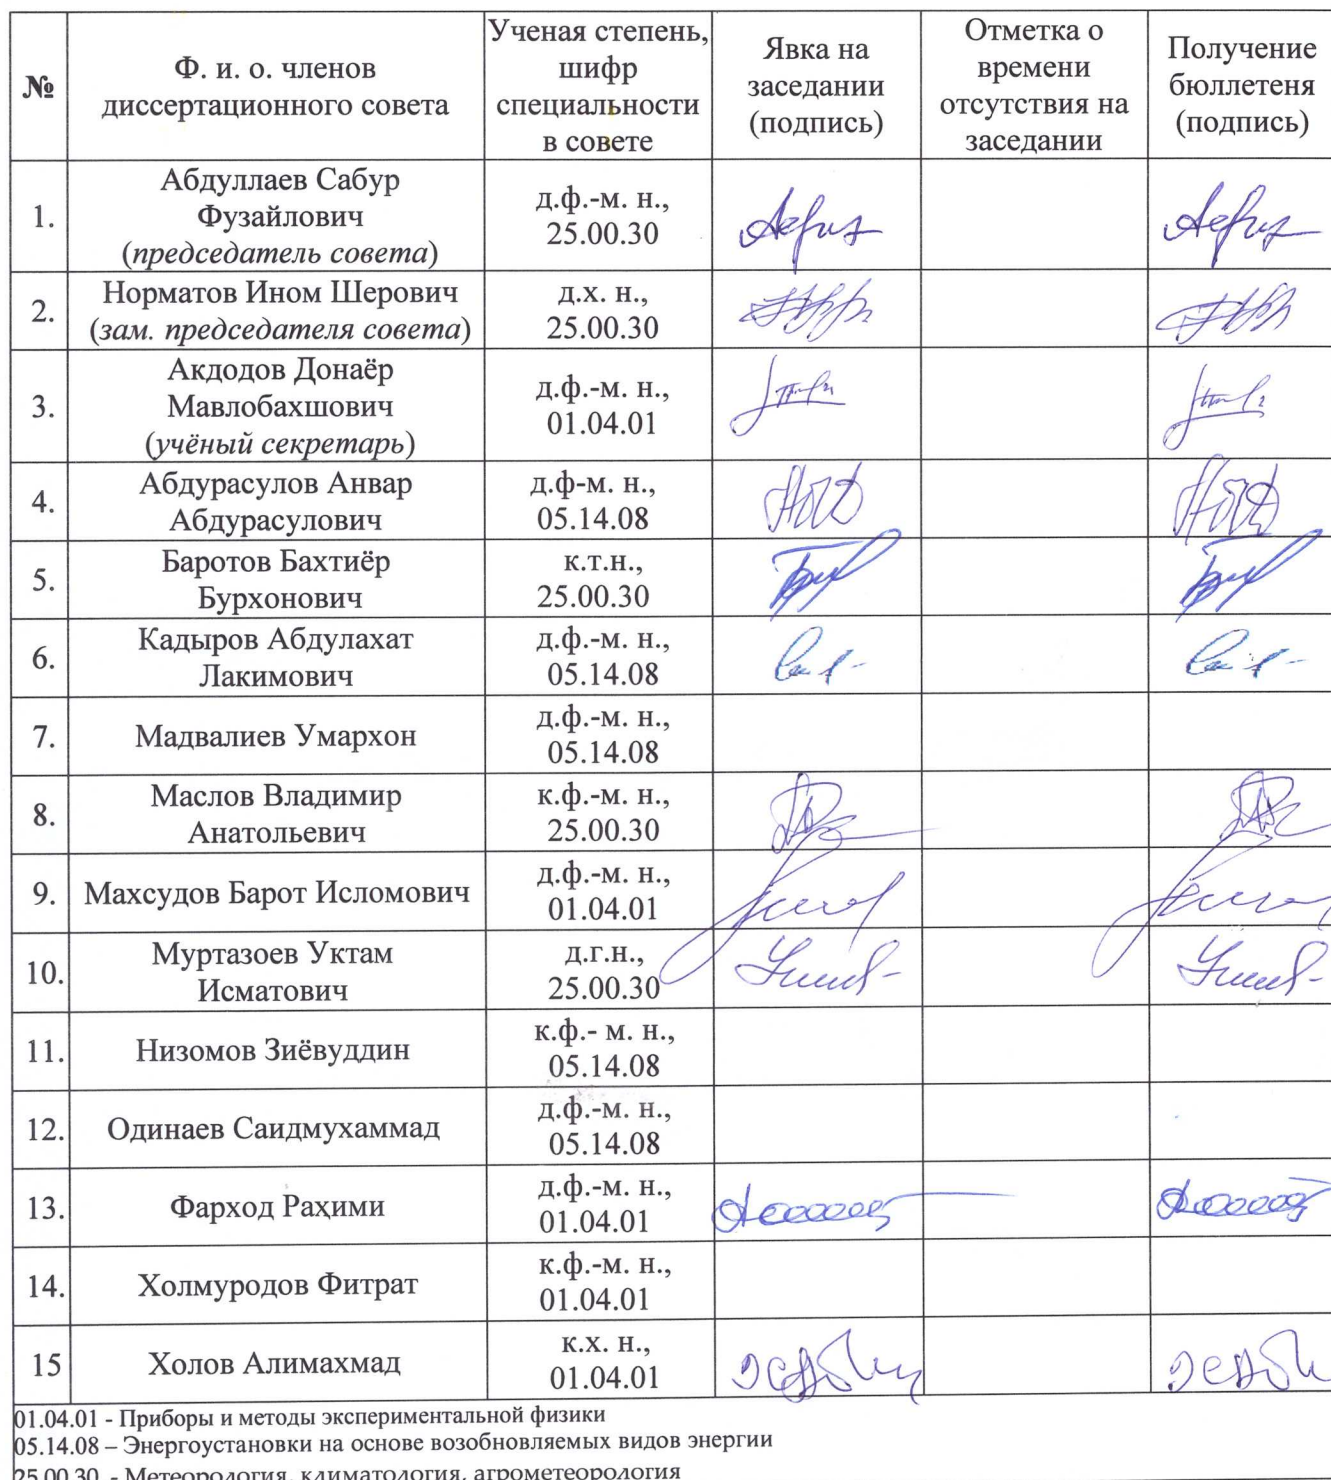 №
Ф. и. о. членов
диссертационного совета
Ученая степень,
шифр
специальности
в совете
Явка на
заседании
(подпись)
Отметка о
времени
отсутствия на
заседании
Получение
бюллетеня
(подпись)
1.
Абдуллаев Сабур
Фузайлович
(председатель совета)
д.ф.-м. н.,
25.00.30
2.
Норматов Ином Шерович
(зам. председателя совета)
д.х. н.,
25.00.30
3.
Акдодов Донаёр
Мавлобахшович
(учёный секретарь)
д.ф.-м. н.,
01.04.01
4.
Абдурасулов Анвар
Абдурасулович
д.ф-м. н.,
05.14.08
5.
Баротов Бахтиёр
Бурхонович
к.т.н.,
25.00.30
6.
Кадыров Абдулахат
Лакимович
д.ф.-м. н.,
05.14.08
7.
Мадвалиев Умархон
д.ф.-м. н.,
05.14.08
8.
Маслов Владимир
Анатольевич
к.ф.-м. н.,
25.00.30
9.
Махсудов Барот Исломович
д.ф.-м. н.,
01.04.01
10.
Муртазоев Уктам
Исматович
д.г.н.,
25.00.30
11.
Низомов Зиёвуддин
к.ф.- м. н.,
05.14.08
12.
Одинаев Саидмухаммад
д.ф.-м. н.,
05.14.08
13.
Фарход Раҳими
д.ф.-м. н.,
01.04.01
14.
Холмуродов Фитрат
к.ф.-м. н.,
01.04.01
15
Холов Алимахмад
к.х. н.,
01.04.01
01.04.01 - Приборы и методы экспериментальной физики
05.14.08 – Энергоустановки на основе возобновляемых видов энергии
25.00.30 - Метеорология, климатология, агрометеорология